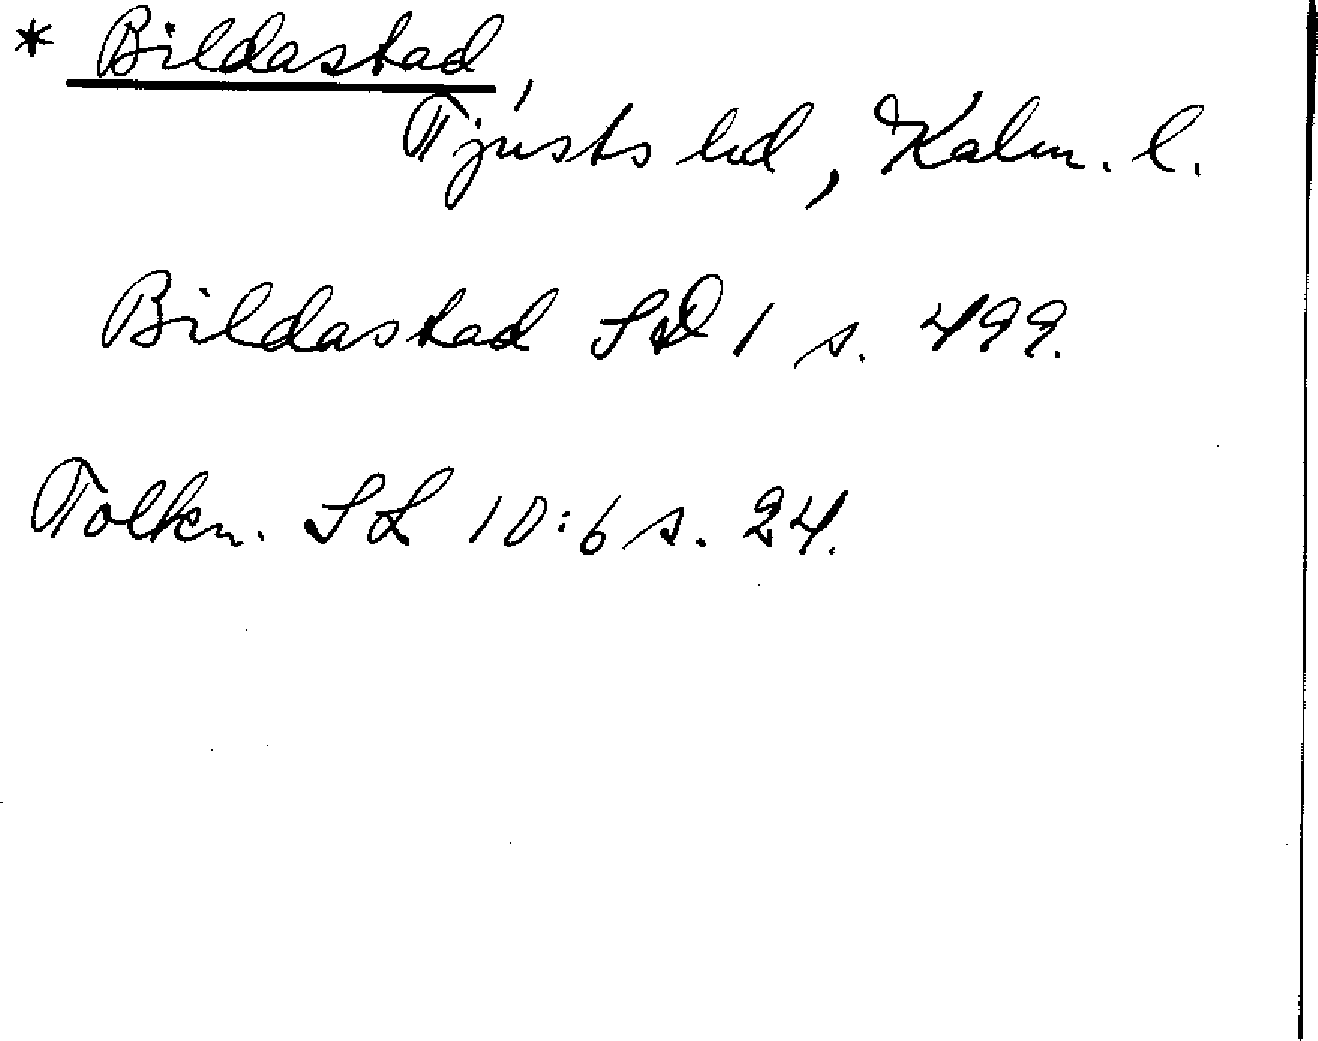 * Bildastad,
Tjusts hd, Kalm. l.
Bildastad SD 1 s. 499.
Tolkn. SL 10:6 s. 24.